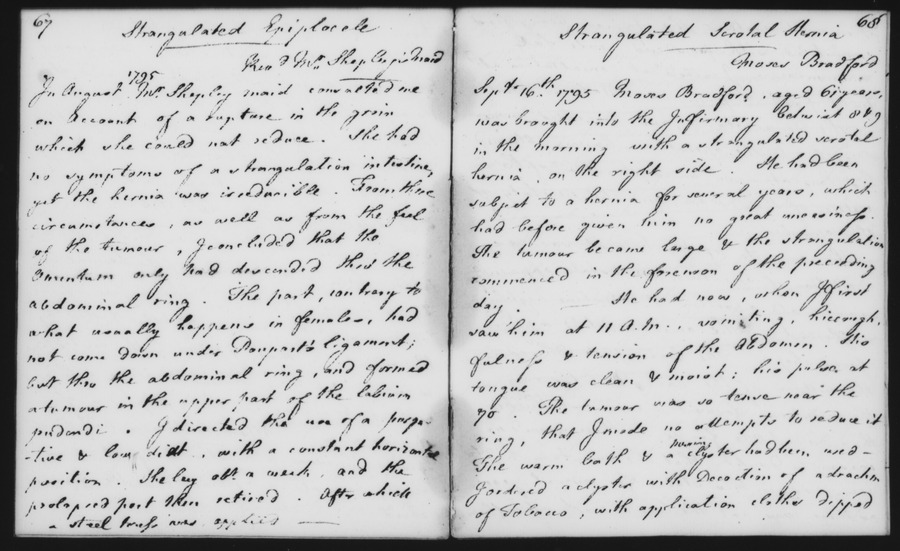 67
Strangulated Epiplocele
Revd. Mr. Shepley's Maid
In August 1795 Mr. Shepley maid consulted me
on account of a rupture in the groin
which she could not reduce. She had
no symptoms of a strangulation intestine,
yet the hernia was irreducible. From these
circumstances, as well as from the feel
of the tumour, I concluded that the
Omentum only had descended thro' the
abdominal ring. The part, contrary to
what usually happens in females, had
not come down under Poupart's ligament;
but thro the abdominal ring, and formed
a tumour in the upper part of the labium
pudendi. I directed the use of a purga-
-tive & low diet, with a constant horizontal
position. She lay abt. a week, and the
prolapsed part then retired. After which
a steel truss was applied —
68
Strangulated Scrotal Hernia
Moses Bradford
Septr. 16th. 1795 Moses Bradford, aged 61 years,
was brought into the Infirmary betwixt 8 & 9
in the morning with a strangulated scrotal
hernia on the right side. He had been
subject to a hernia for several years, which
had before given him no great uneasiness.
The tumour became large & the strangulation
commenced in the forenoon of the preceeding
day. — He had now, when I first
saw him at 11 A.M., vomiting, hiccough,
fulness & tension of the abdomen. His
tongue was clean & moist; his pulse, at
70. The tumour was so tense near the
ring, that I made no attempts to reduce it
The warm bath & a clyster had been used –
I ordered a clyster with Decoction of a drachm
of Tobacco, with application cloths dipped